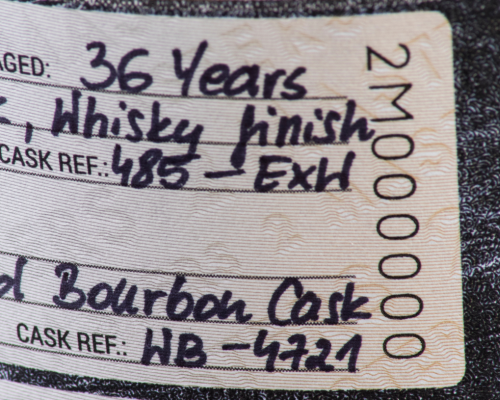 AGED: 36 Years
, Whisky finish
CASK REF.: 485 - ExW
d Bourbon Cask
CASK REF.: WB - 4721
2M000000